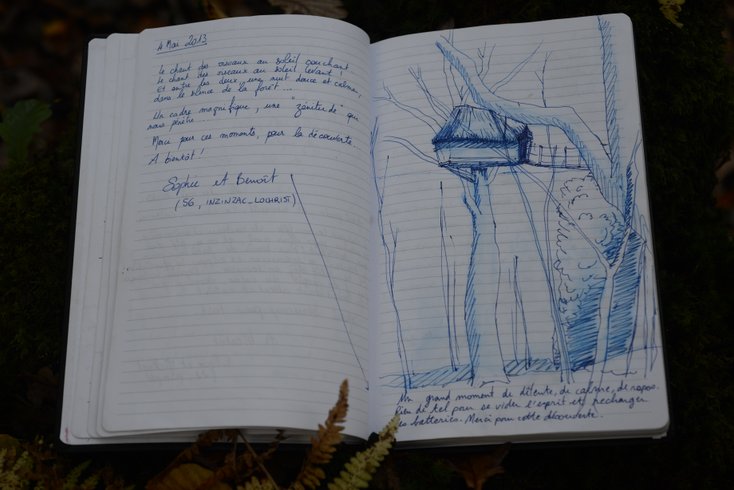 4 Mai 2013
Le chant des oiseaux au soleil couchant,
Le chant des oiseaux au soleil levant,
Et entre les deux, une nuit douce et calme,
dans le silence de la forêt...
Un cadre magnifique, une "zénitude" qui
nous pénètre...
Merci pour ces moments, pour la découverte.
A bientôt!
Sophie et Benoît
(56, INZINZAC_LOCHRIST)
Un grand moment de détente, de calme, de repos.
Rien de tel pour se vider l'esprit et recharger
les batteries. Merci pour cette découverte.